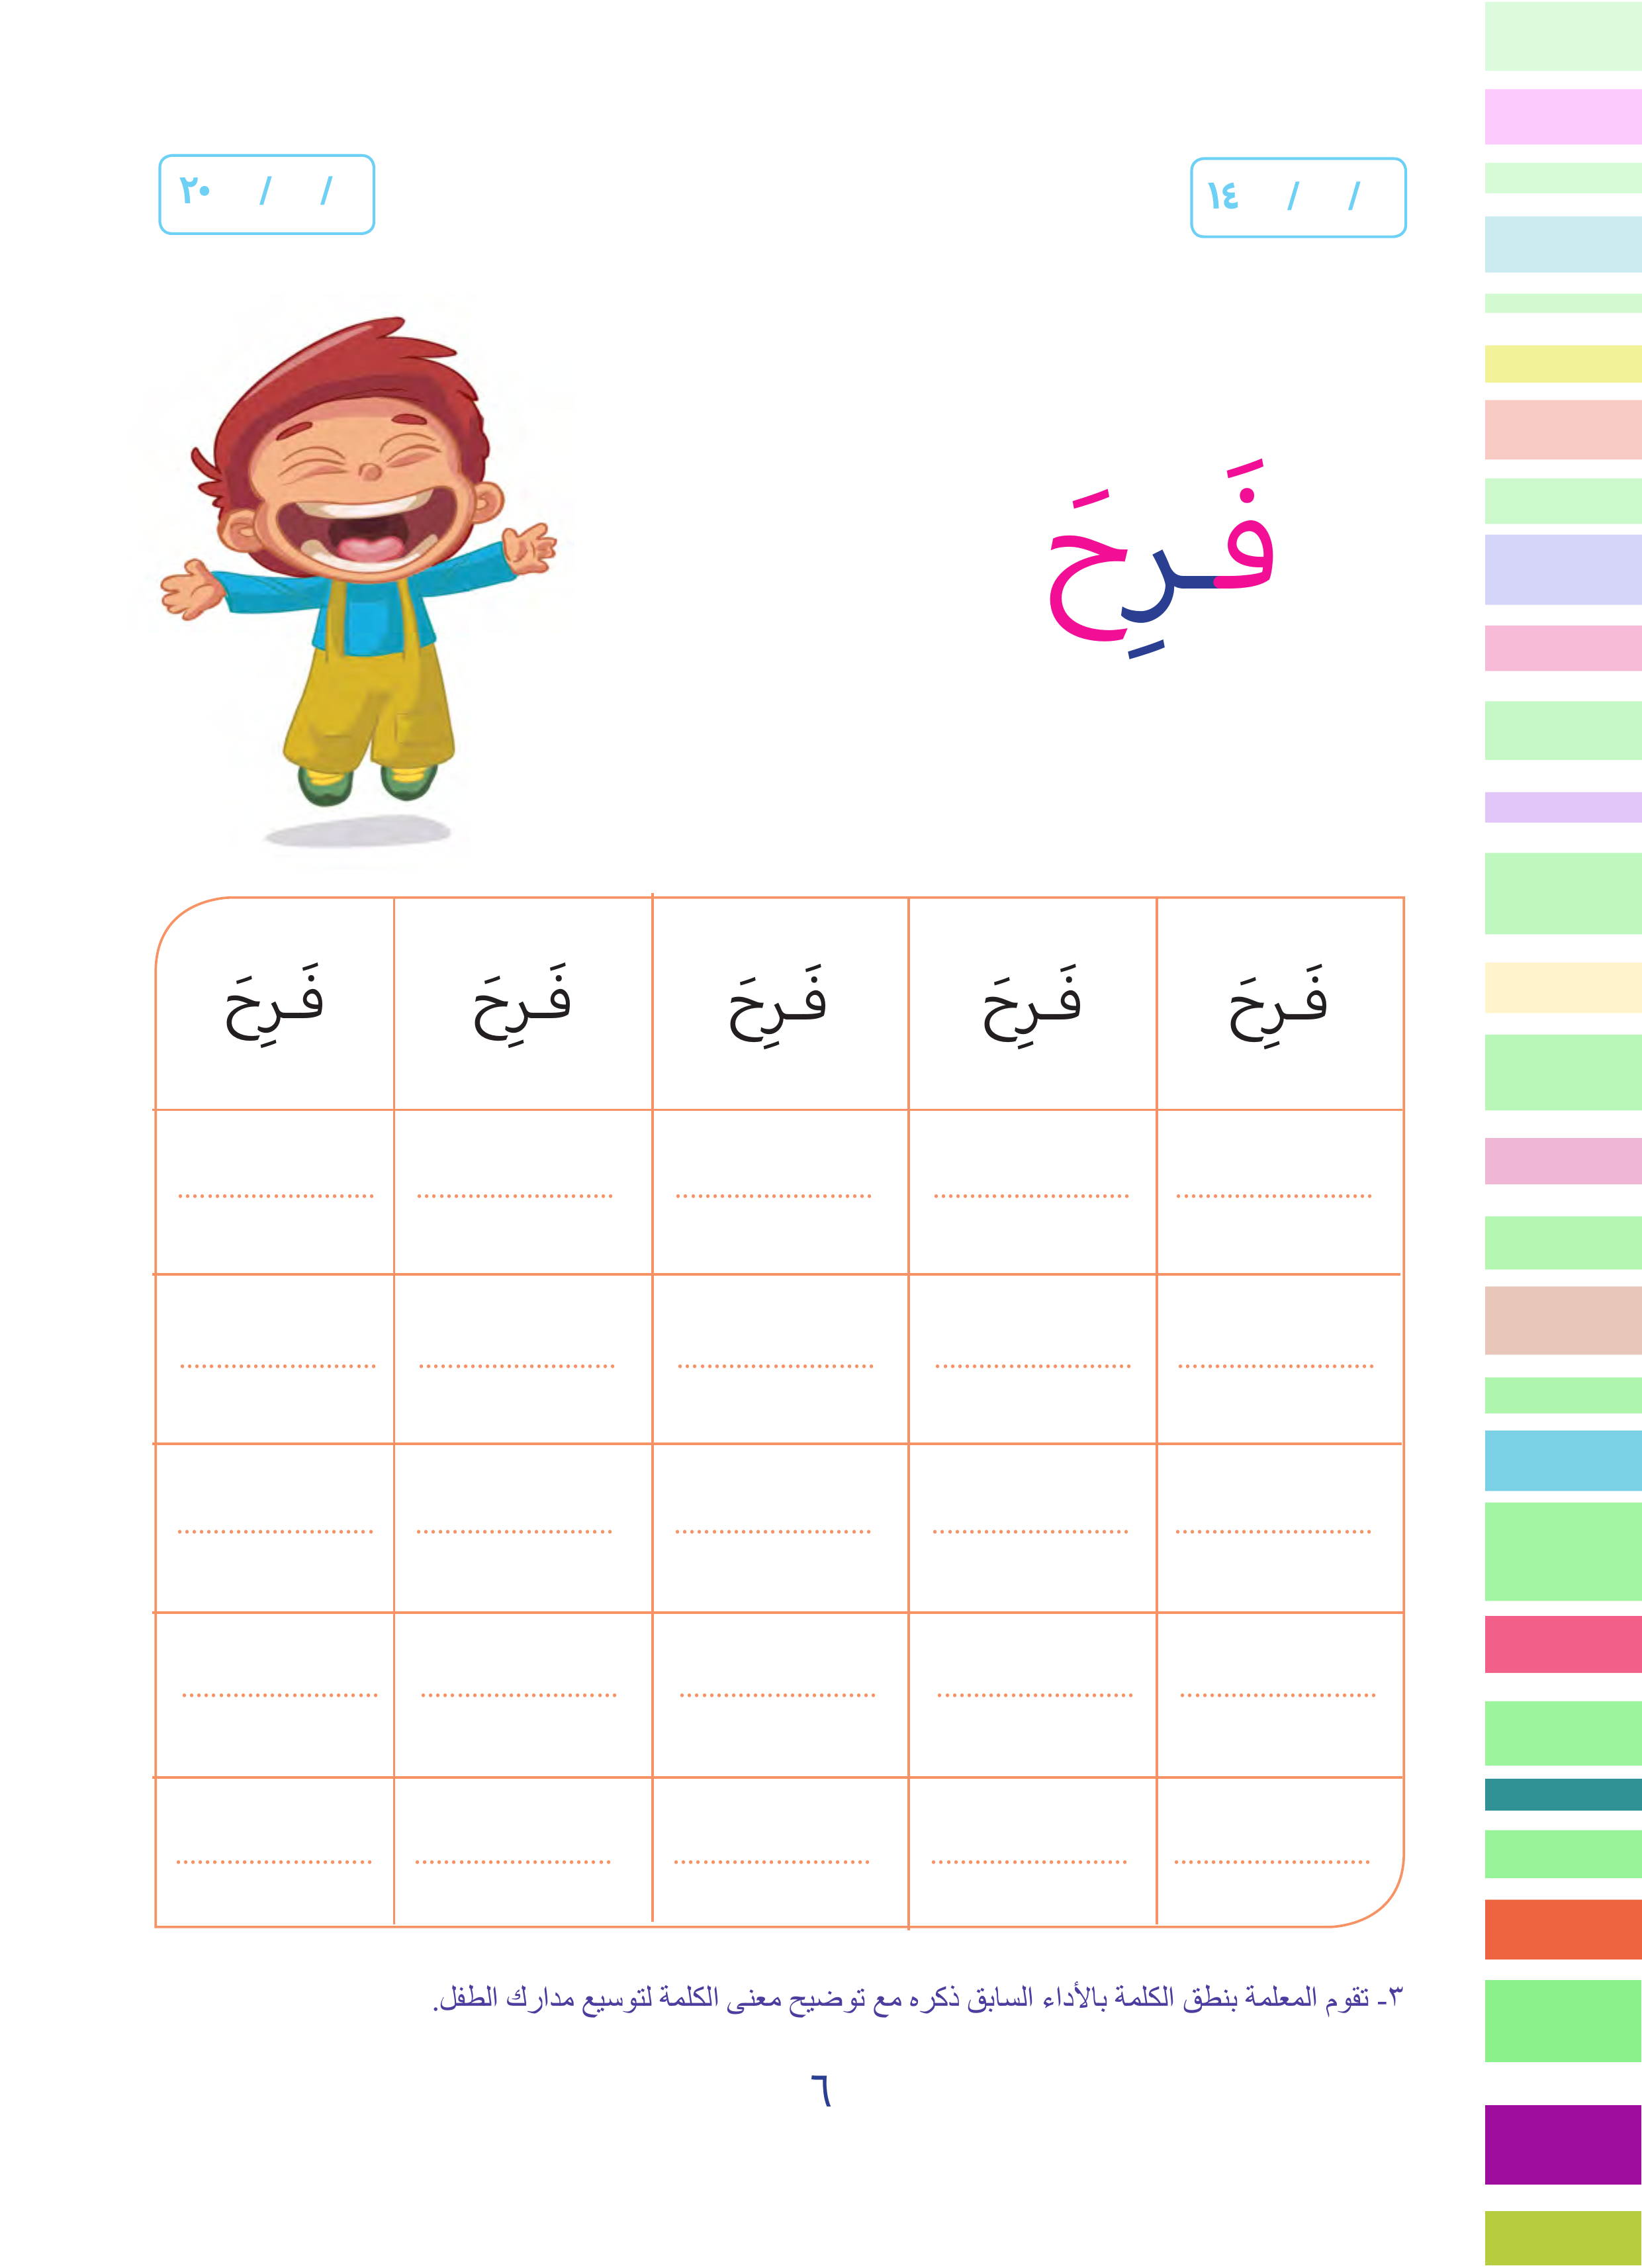 / / ١٤
/ / ٢٠
فَـرِحَ
فَـرِحَ فَـرِحَ فَـرِحَ فَـرِحَ فَـرِحَ
٣- تقوم المعلمة بنطق الكلمة بالأداء السابق ذكره مع توضيح معنى الكلمة لتوسيع مدارك الطفل.
٦